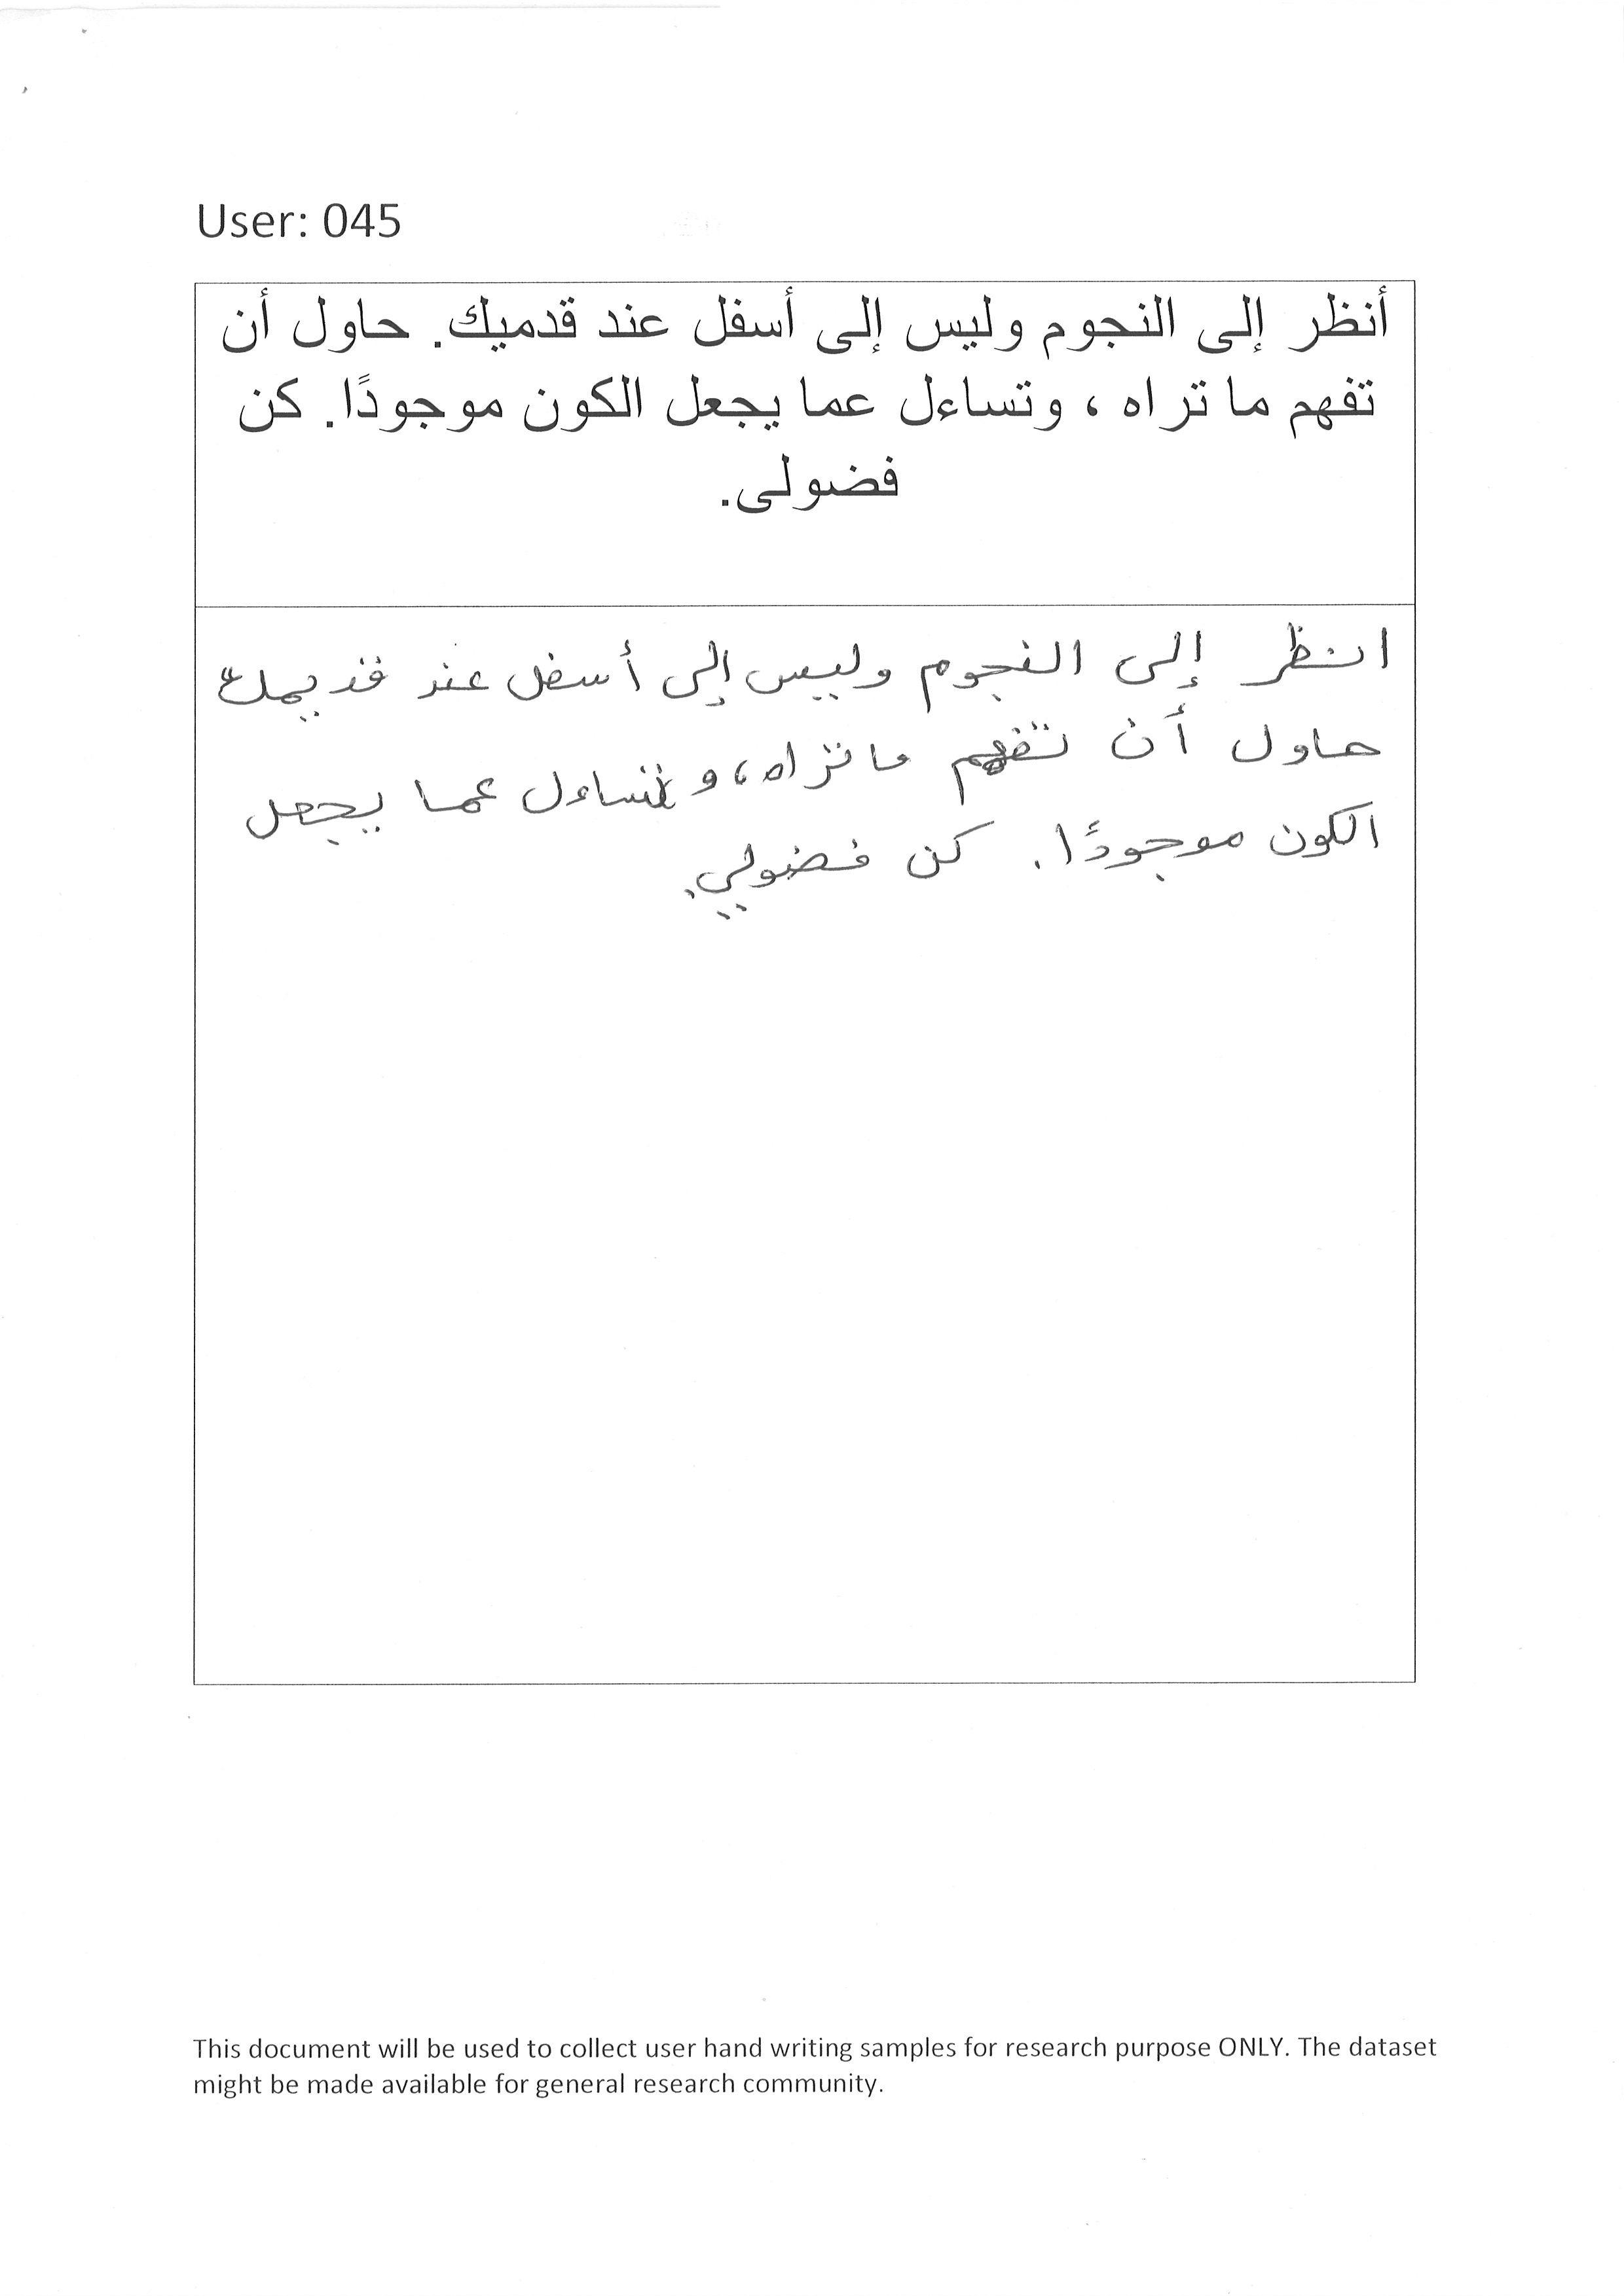 User: 045
أنظر إلى النجوم وليس إلى أسفل عند قدميك. حاول أن
تفهم ما تراه ، وتساءل عما يجعل الكون موجودًا. كن
فضولى.
انظر إلى النجوم وليس إلى أسفل عند قدميك
حاول أن تفهم ما تراه، و تتساءل عما يجعل
الكون موجودًا. كن فضولي.
This document will be used to collect user hand writing samples for research purpose ONLY. The dataset
might be made available for general research community.